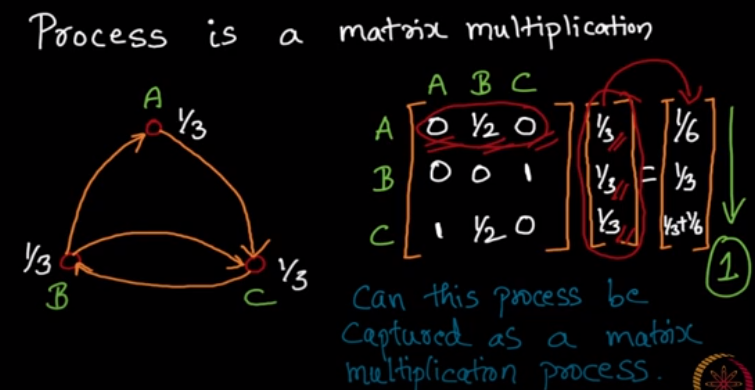 Process is a matrix multiplication
A 1/3
1/3 B
C 1/3
A B C
A 0 1/2 0 1/3 1/6
B 0 0 1 1/3 = 1/3
C 1 1/2 0 1/3 1/3+1/6
1
Can this process be
Captured as a matrix
multiplication process.